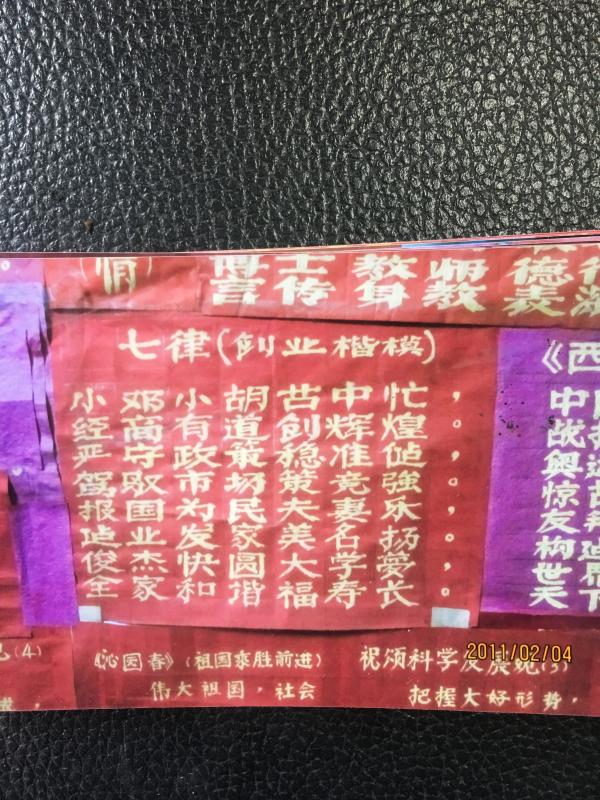 (情)
博士教师德行
言传身教表
七律(创业楷模)
小邓小胡古中忙，
经商有道创辉煌。
严守政策稳准健，
驾驭市场策竞強。
报国为民夫妻乐，
建业发家美名扬。
俊杰快圆大学夢，
全家和谐福寿长。
《西
中
战
奥运
惊
友
构建
世界
天下
(4)
《沁园春》(祖国乘胜前进)
伟大祖国，社会
祝颂科学发展观(5)
把握大好形势，
2011/02/04